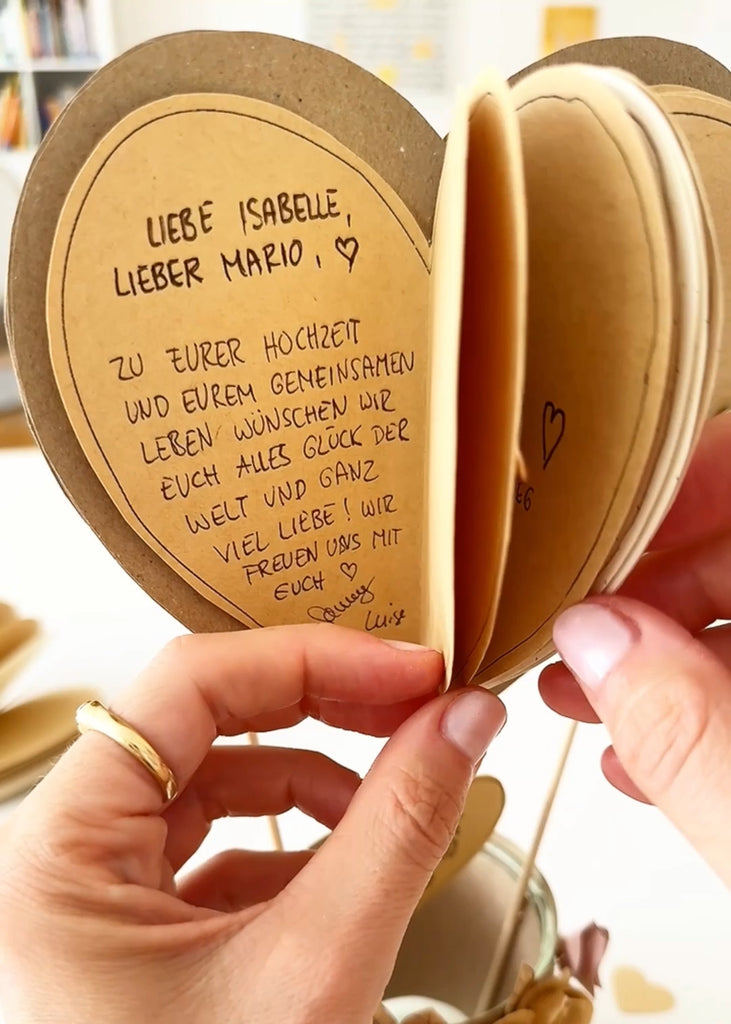 LIEBE ISABELLE,
LIEBER MARIO, ♡
ZU EURER HOCHZEIT
UND EUREM GEMEINSAMEN
LEBEN WÜNSCHEN WIR
EUCH ALLES GLÜCK DER
WELT UND GANZ
VIEL LIEBE! WIR
FREUEN UNS MIT
EUCH ♡
Luise